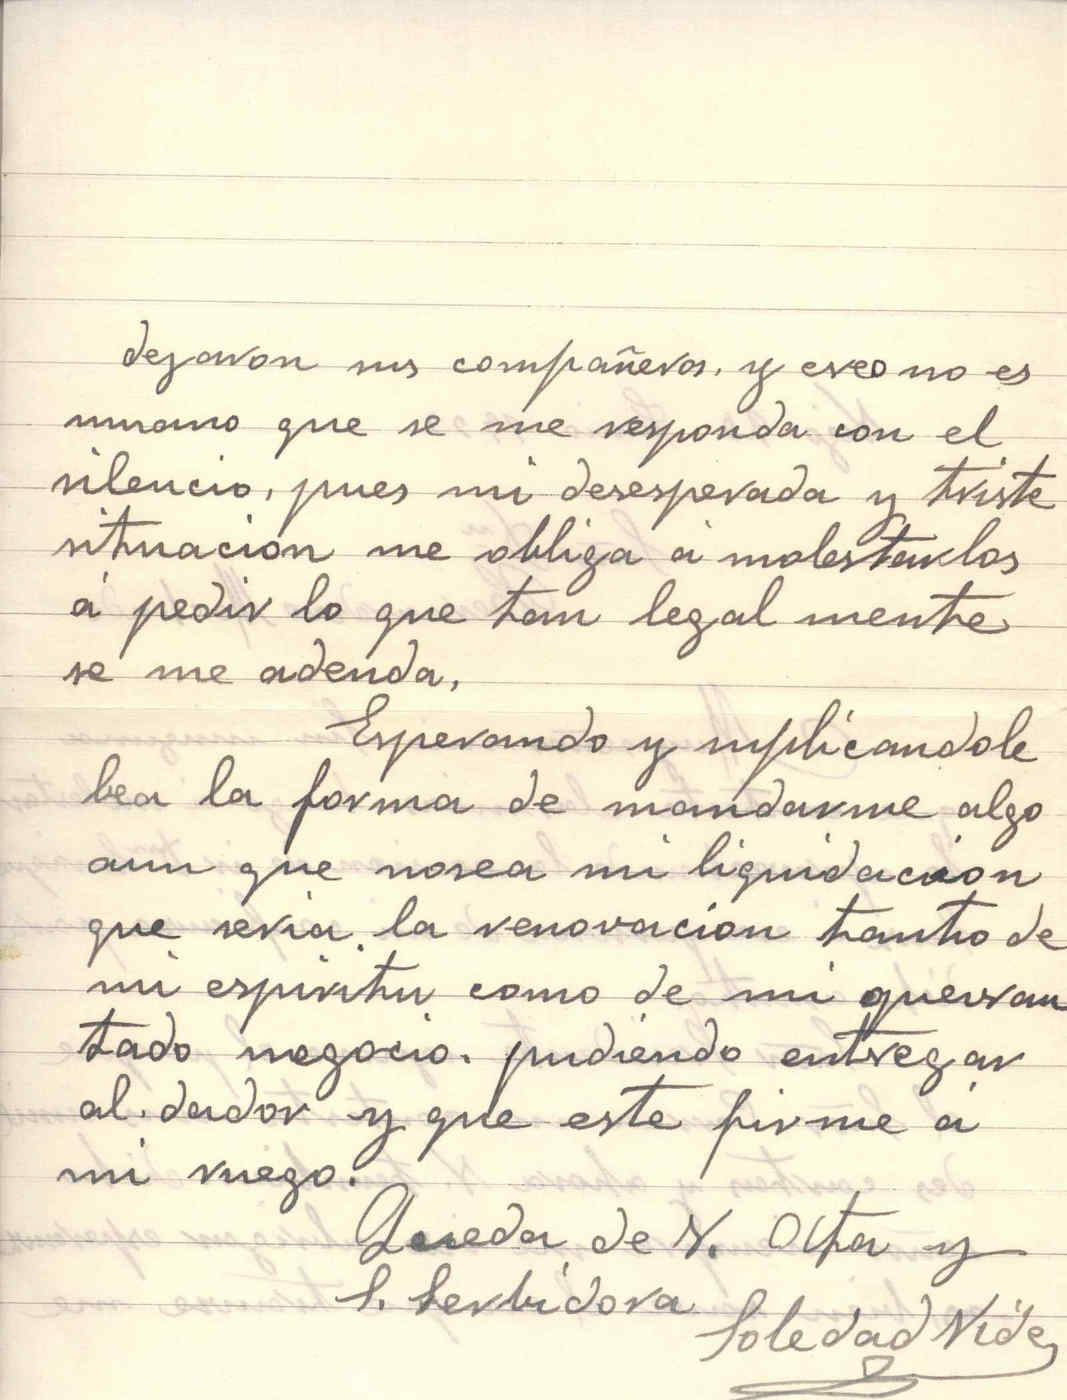 dejaron sus compañeros. y creo no es
umano que se me responda con el
silencio, pues mi desesperada y triste
situacion me obliga á molestarlos
á pedir lo que tan legal mente
se me adeuda,
Esperando y suplicandole
bea la forma de mandarme algo
aun que nosea mi liquidacion
que seria. la renovacion tanto de
mi espiritu como de mi quevran
tado negocio. pudiendo entregar
al. dador y que este firme á
mi ruego.
Queda de V. Atta y
S. Serbidora
Soledad